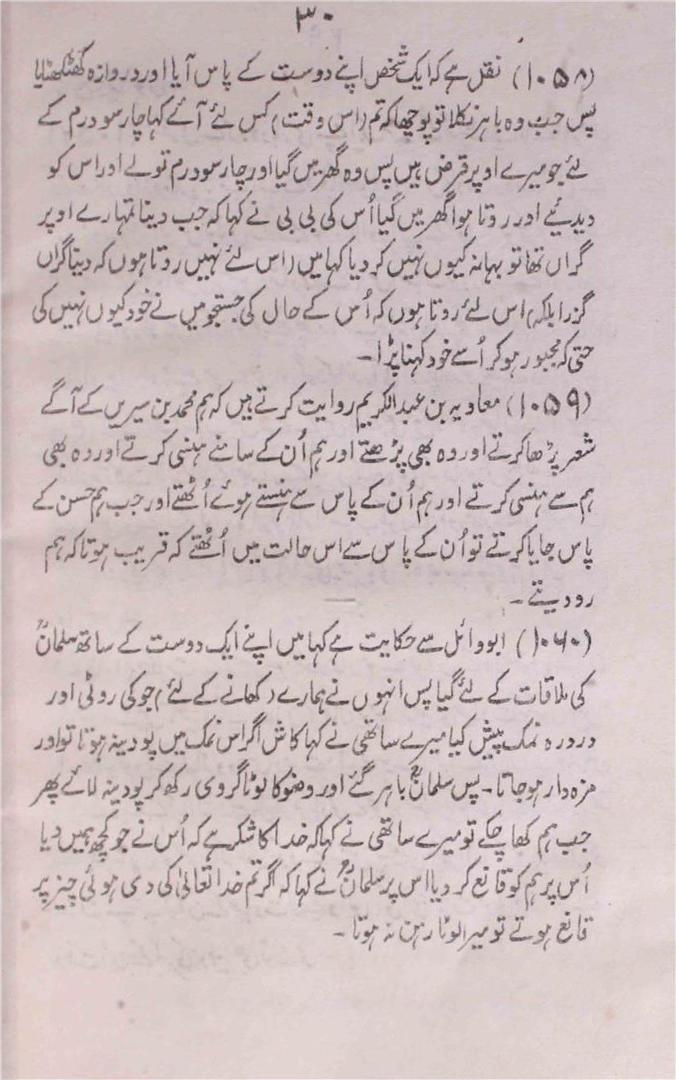 ۳۰
(۱۰۵۸) نقل ہے کہ ایک شخص اپنے دوست کے پاس آیا اور دروازہ کھٹکھٹایا
پس جب وہ باہر نکلا تو پوچھا کہ تم (اس وقت) کس لئے آئے کہا چار سو درم کے
لئے جو میرے اوپر قرض ہیں پس وہ گھر میں گیا اور چار سو درم تولے اور اس کو
دیدئیے اور روتا ہوا گھر میں گیا اُس کی بی بی نے کہا کہ جب دینا تمہارے اوپر
گراں تھا تو بہانہ کیوں نہیں کر دیا کہا میں (اس لئے نہیں روتا ہوں کہ دینا گراں
گزرا بلکہ) اس لئے روتا ہوں کہ اُس کے حال کی جستجو میں نے خود کیوں نہیں کی
حتی کہ مجبور ہو کر اُسے خود کہنا پڑا۔
(۱۰۵۹) معاویہ بن عبد الکریم روایت کرتے ہیں کہ ہم محمد بن سیریں کے آگے
شعر پڑھا کرتے اور وہ بھی پڑھتے اور ہم اُن کے سامنے ہنسی کرتے اور وہ بھی
ہم سے ہنسی کرتے اور ہم اُن کے پاس سے ہنستے ہوئے اُٹھتے اور جب ہم حسن کے
پاس جایا کرتے تو اُن کے پاس سے اس حالت میں اُٹھتے کہ قریب ہوتا کہ ہم
رو دیتے۔
(۱۰۶۰) ابو وائل سے حکایت ہے کہا میں اپنے ایک دوست کے ساتھ سلمانؓ
کی ملاقات کے لئے گیا پس انہوں نے ہمارے دکھانے کے لئے) جو کی روٹی اور
دردرہ نمک پیش کیا میرے ساتھی نے کہا کاش اگر اس نمک میں پودینہ ہوتا تو اور
مزہ دار ہو جاتا۔ پس سلمانؓ باہر گئے اور وضو کا لوٹا گروی رکھ کر پودینہ لائے پھر
جب ہم کھا چکے تو میرے ساتھی نے کہا کہ خدا کا شکر ہے کہ اُس نے جو کچھ ہمیں دیا
اُس پر ہم کو قانع کر دیا اس پر سلمانؓ نے کہا کہ اگر تم خدا تعالیٰ کی دی ہوئی چیز پر
قانع ہوتے تو میرا لوٹا رہن نہ ہوتا۔